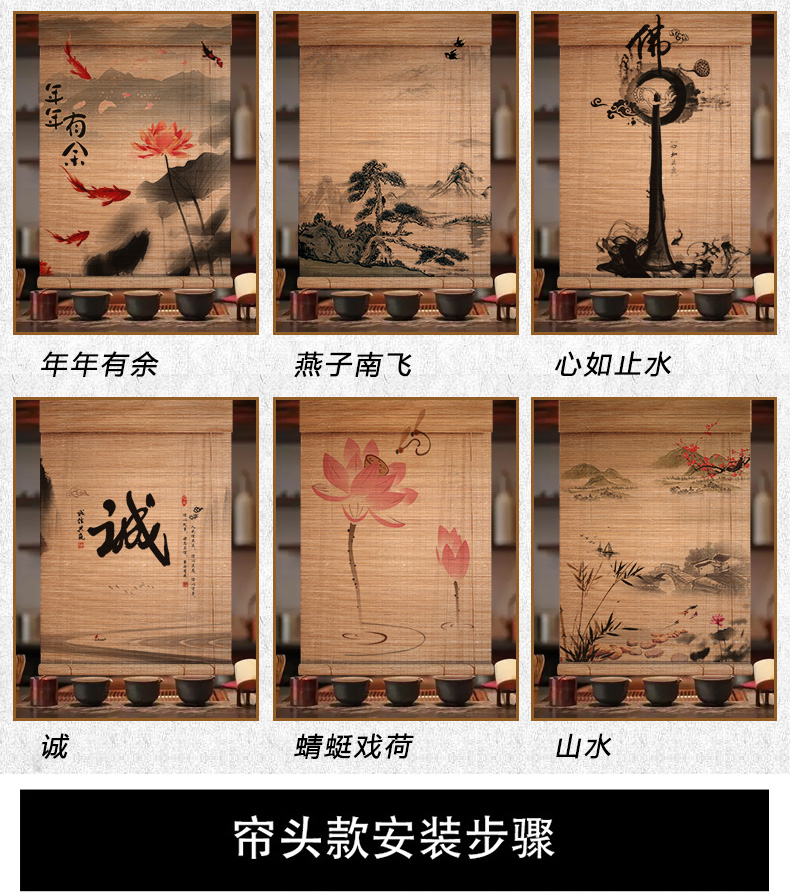 年年有余
佛
心如止水
年年有余
燕子南飞
心如止水
诚
诚信共赢
诚
蜻蜓戏荷
山水
帘头款安装步骤